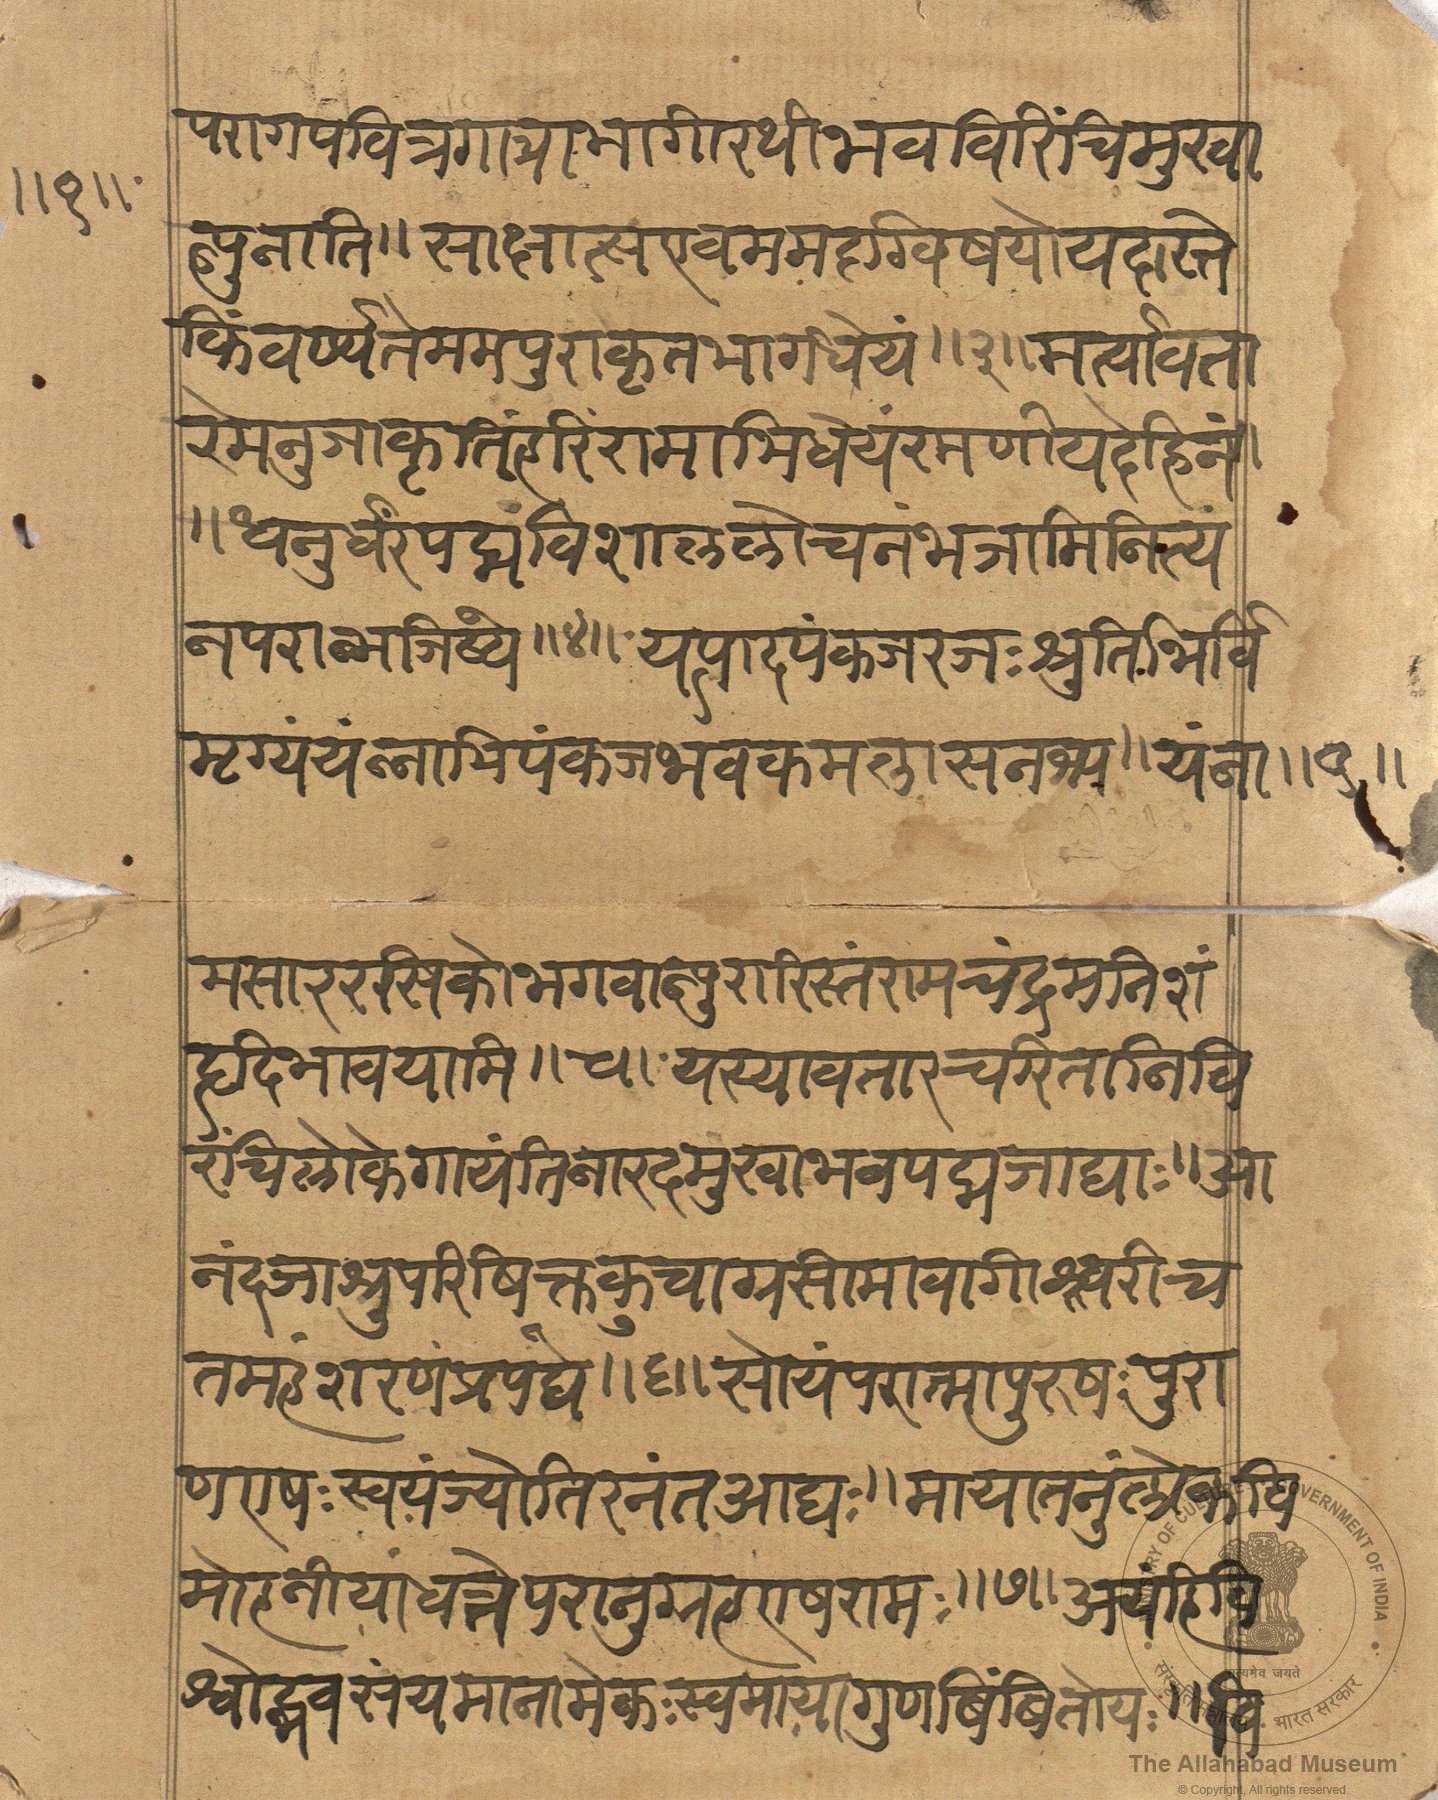 परागपवित्रगात्राभागीरथीभवविरिंचिमुखा
॥१॥
न्पुनाति॥साक्षात्सएवममदृग्विषयोयदास्ते
किंवर्ण्यतेममपुराकृतभागधेयं॥३॥मर्त्यावता
रेमनुजाकृतिंहरिंरामाभिधेयंरमणीयदेहिनं।
॥धनुर्धरंपद्मविशाललोचनंभजामिनित्यं
नपरान्भजिष्ये॥४॥यत्पादपंकजरजःश्रुतिभिर्वि
मृग्यंयंन्नाभिपंकजभवकमलासनश्च॥यंना॥१॥
मसाररसिकोभगवान्पुरारिस्तंरामचंद्रमनिशं
हृदिभावयामि॥५॥यस्यावतारचरितानिवि
रंचिलोकेगायंतिनारदमुखाभवपद्मजाद्याः॥आ
नंदजाश्रुपरिषिक्तकुचाग्रसीमावागीश्वरीच
तमहंशरणंप्रपद्ये॥६॥सोयंपरात्मापुरुषःपुरा
णएषःस्वयंज्योतिरनंतआद्यः॥मायातनुंलोकवि
मोहनीयांधत्तेपरानुग्रहएषरामः॥७॥अयंहिवि
श्वोद्भवसंयमानामेकःस्वमायागुणबिंबितोयः॥वि
MINISTRY OF CULTURE GOVERNMENT OF INDIA
सत्यमेव जयते
भारत सरकार
The Allahabad Museum
© Copyright, All rights reserved.